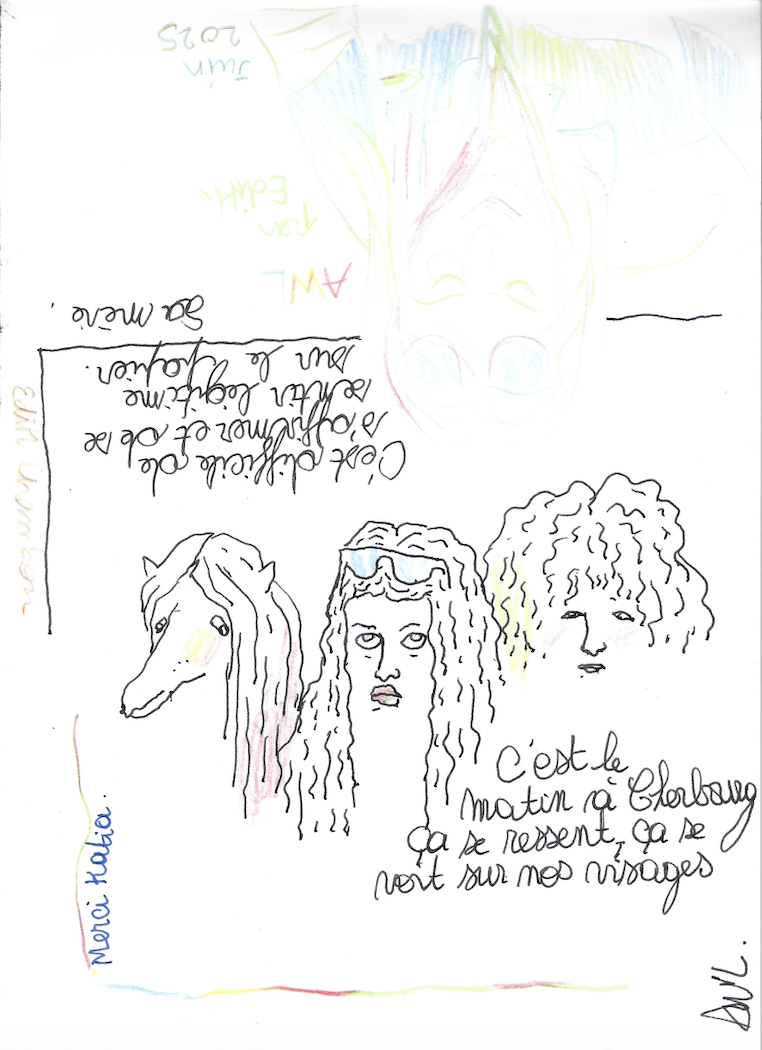 Juin
2025
AWL
par
Edith
C'est difficile de
s'affirmer et de se
sentir légitime
sur le papier.
Sa mère.
Edith
Merci Katia.
C'est le
matin à Cherbourg
ça se ressent, ça se
voit sur nos visages
AWL.